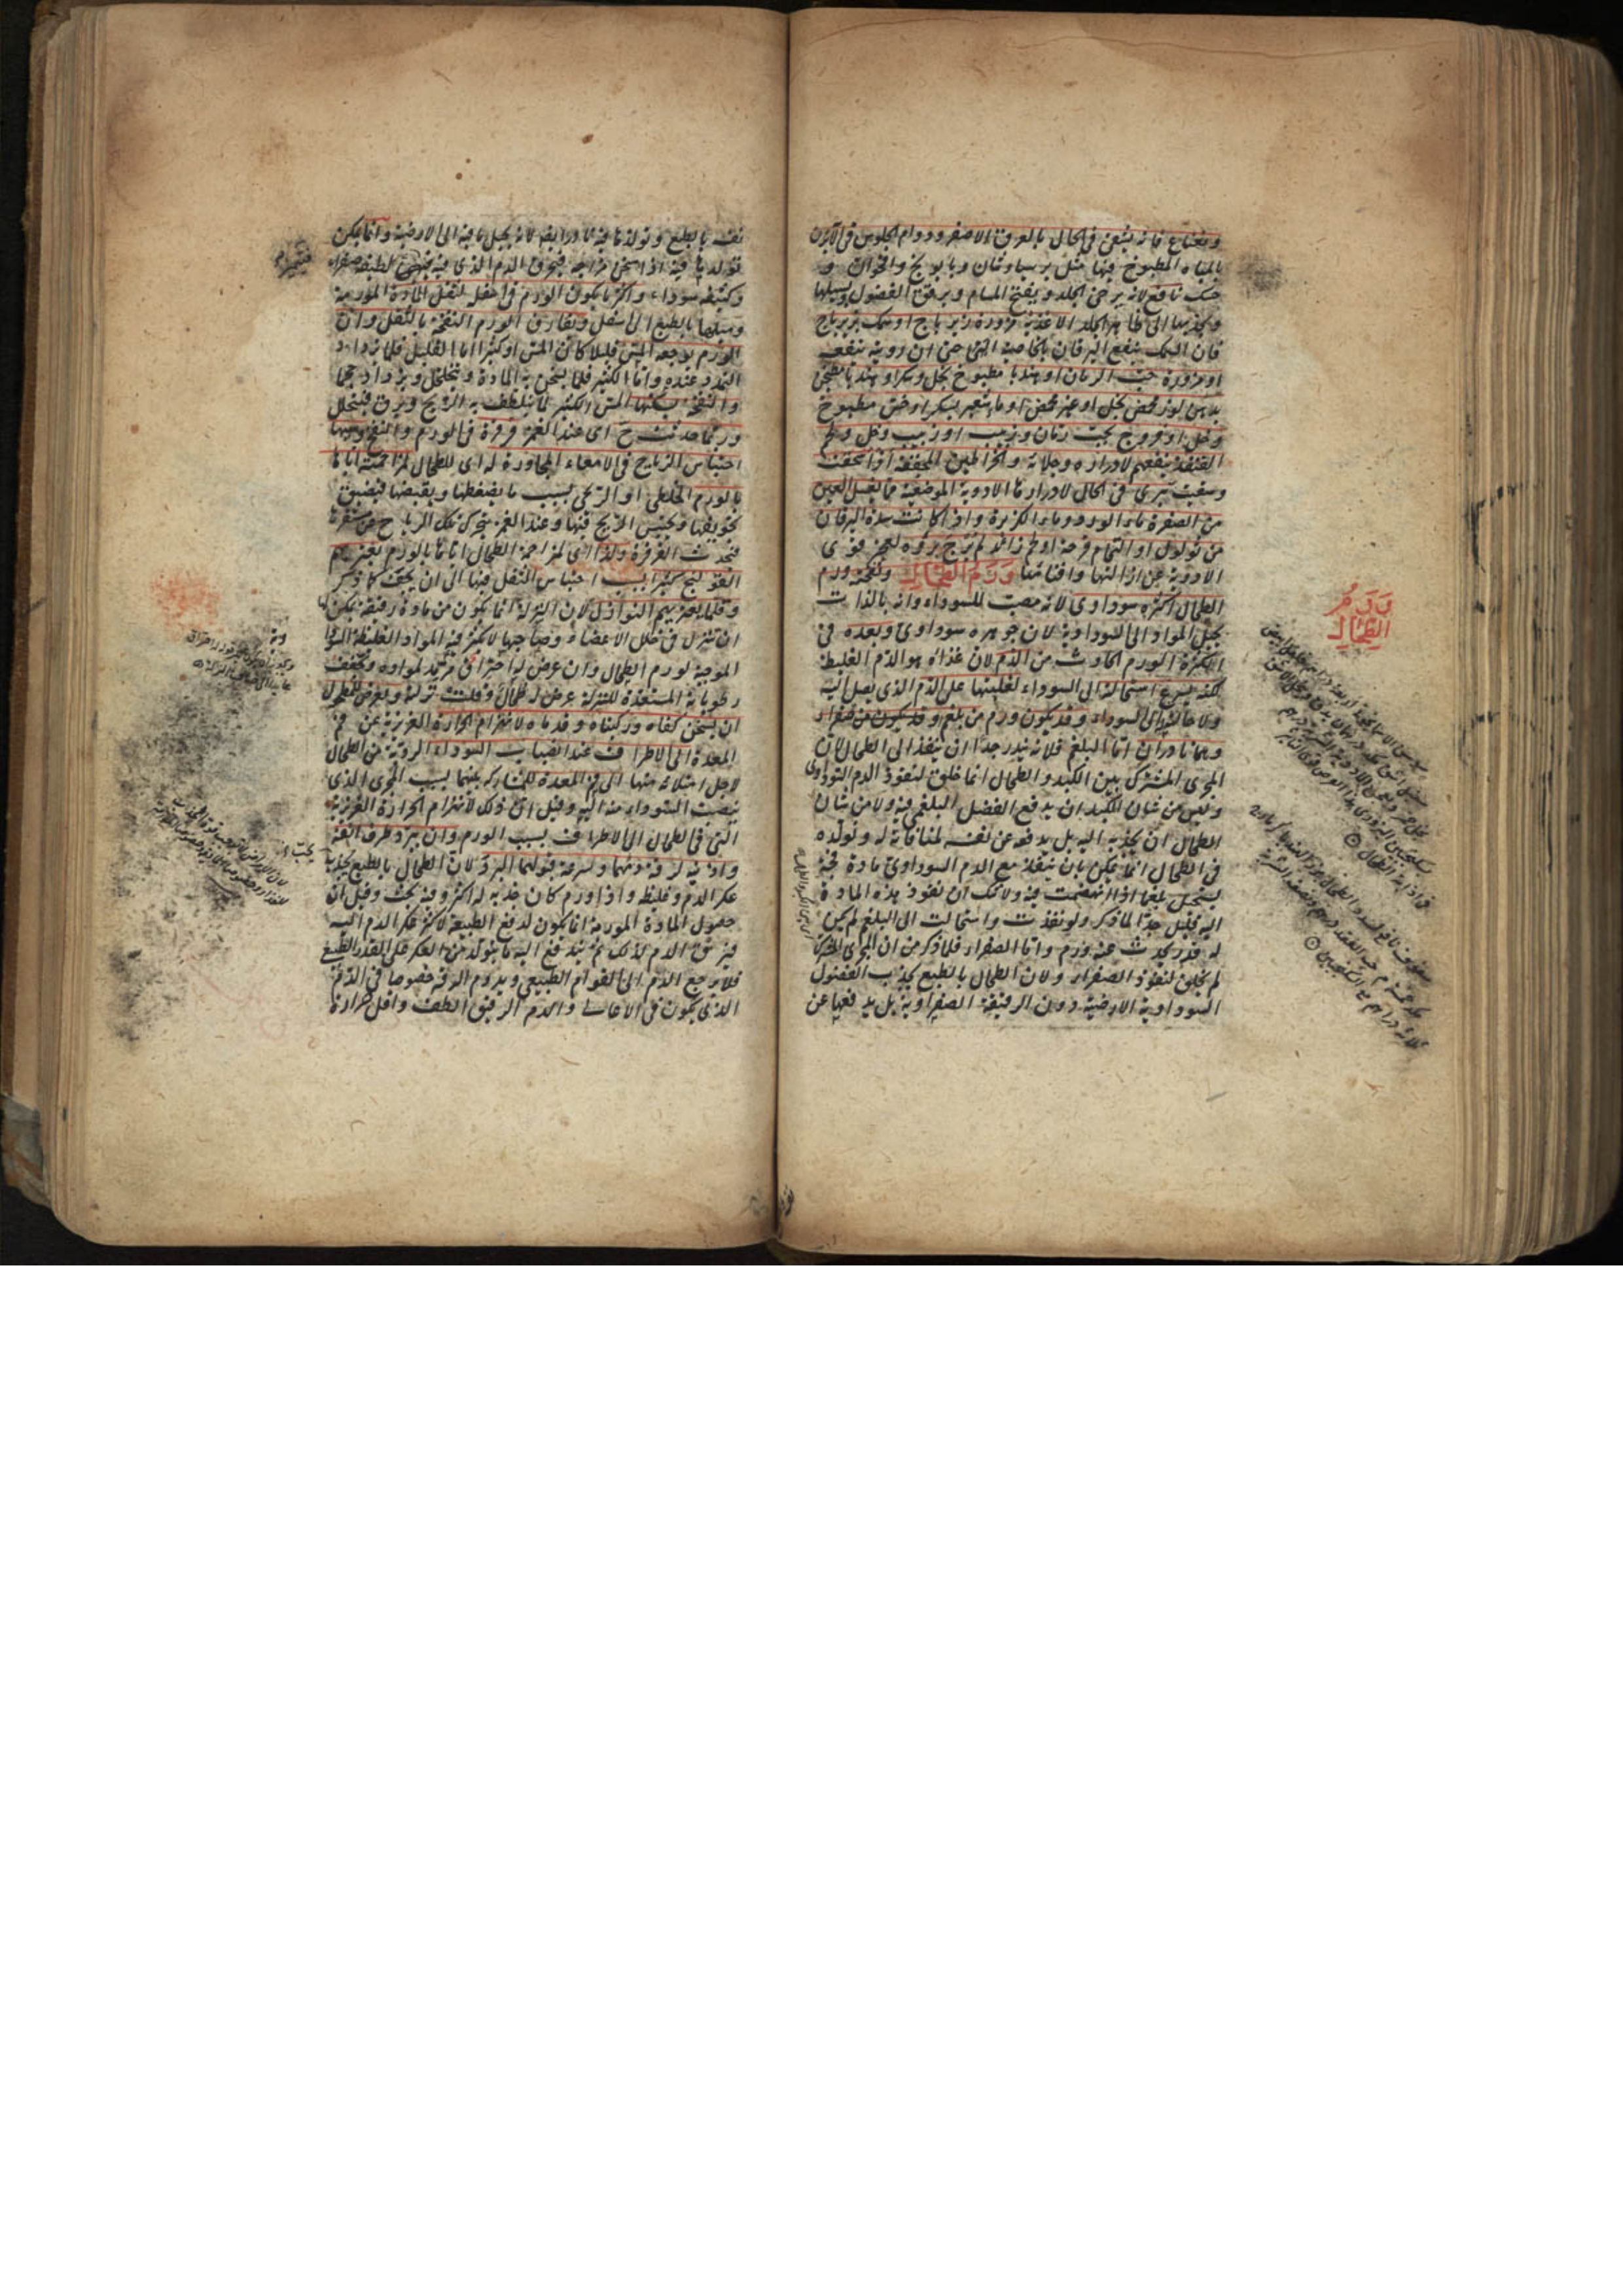 ونعناع فانه يشفى فى الحال بالعرق الاصفر ودوام الجلوس فى الآبزن
بالمياه المطبوخ فيها مثل برسياوشان وبابونج واقحوان و
حسك نافع لانه يرخى الجلد ويفتح المسام ويرقق الفضول ويسيلها
ويجذبها الى ظاهر الجلد الاغذية مزورة زيرباج او سمك بزيرباج
فان السمك ينفع اليرقان بالخاصية التى حتى ان رويته تنفعه
او مزورة حب الرمان او هندبا مطبوخ بخل وسكر او هندبا مطجن
بدهن لوز محمض بخل او غير محمض او ماء شعير بسكر او خس مطبوخ
وخل او فروج بحب رمان وزبيب او زبيب وخل ولحم
القنفذ ينفعهم لادراره وجلائه والخراطين المجففة اذا سحقت
وسقيت تبرى فى الحال لادرارها الادوية الموضعية مما يغسل العين
من الصفرة ماء الورد وماء الكزبرة واذا كانت سدة اليرقان
من ثولول او التحام قرحة او لحم زائد لم يرج برؤه لعجز قوى
الادوية عن ازالتها وافنائها ورم الطحال ونفخته ورم
الطحال اكثره سوداوى لانه مصب للسوداء وانه بالذات
يحيل المواد الى السوداوية لان جوهره سوداوى وبعده فى
الكثرة الورم الحادث من الدم لان غذاه هو الدم الغليظ
لكنه يسرع استحالته الى السوداء لغلبتها على الدم الذى يصل اليه
ولاحالتها الى السوداء وقد يكون ورم من بلغم وقد يكون من صفراء
وهما نادران اما البلغم فلانه يندر جدا ان ينفذ الى الطحال لان
المجرى المشترك بين الكبد والطحال انما خلق لنفوذ الدم السوداوى
وليس من شان الكبد ان يدفع الفضل البلغمى فيه ولا من شان
الطحال ان يجذبه اليه بل يدفعه عن نفسه لمنافاته له وتولده
فى الطحال انما يمكن بان ينفذ مع الدم السوداوى مادة فجة
يستحيل بلغما اذا انهضمت فيه ولا شك ان نفوذ هذه المادة
اليه قليل جدا لما ذكر ولو نفذت واستحالت الى البلغم لم يكن
له قدر يحدث عنه ورم واما الصفراء فلما ذكر من ان المجرى المشترك
لم يخلق لنفوذ الصفراء ولان الطحال بالطبع يجذب الفضول
السوداوية الارضية دون الرقيقة الصفراوية بل يدفعها عن
ورم
الطحال
نفسه بالطبع وتولدها فيه نادر ايضا لانه يحيل ما فيه الى الارضية وانما يمكن
تولدها فيه اذا سخن مزاجه فيحرق الدم الذى فيه فيصير لطيفه صفراء
وكثيفه سوداء واكثر ما يكون الورم فى اسفل لثقل المادة المورمة
وميلها بالطبع الى اسفل ويفارق الورم النفخة بالثقل وان
الورم يوجعه المس قليلا كان المس او كثيرا اما القليل فلازدياد
التمدد عنده واما الكثير فلما يسخن به المادة ويتخلخل ويزداد حجما
والنفخة يسكنها المس الكثير لما يتلطف به الريح ويرق فيتحلل
وربما حدثت ح اى عند الغمز قرقرة فى الورم والنفخ وسببها
احتباس الرياح فى الامعاء المجاورة له اى للطحال لمزاحمته اياها
بالورم الخلطى او الريحى بسبب ما يضغطها ويقبضها فيضيق
تجويفها وتحتبس الريح فيها وعند الغمز يتحرك تلك الرياح عن مقرها
فتحدث القرقرة ولذا اى لمزاحمة الطحال اياها بالورم يعتريهم
القولنج كثيرا بسبب احتباس الثفل فيها الى ان يجف كما ذكر
وقلما يعتريهم النوازل لان النزلة انما يكون من مادة رقيقة يمكن لها
ان تنزل فى خلل الاعضاء وصاحبها لا يكثر فيه المواد الغليظة السوداوية
الموجبة لورم الطحال وان عرض له احتراق مرمد لمواده ومجفف
رطوباته المستعدة للنزلة عرض له طحال وقلت نزلته ويعرض للمطحول
ان يسخن كفاه وركبتاه وقدماه لانهزام الحرارة الغريزية عن فم
المعدة الى الاطراف عند انصباب السوداء الردية من الطحال
لاجل امتلائه منها الى فم المعدة للمشاركة بينهما بسبب المجرى الذى
ينصب السوداء منه اليه وقيل ان ذلك لانهزام الحرارة الغريزية
التى فى الطحال الى الاطراف بسبب الورم وان يبرد طرف انفه
واذنيه لرقة دمهما ولسرعة قبولهما البرد ولان الطحال بالطبع يجذب
عكر الدم وغليظه واذا ورم كان جذبه له اكثر وفيه بحث وقيل ان
حصول المادة المورمة انما يكون لدفع الطبيعة لاكثر عكر الدم اليه
فيرق الدم لذلك ثم يندفع اليه ما يتولد من العكر على المقدر الطبيعى
فلا يرجع الدم الى القوام الطبيعى ويدوم الرقة خصوصا فى الدم
الذى يكون فى الاعالى والدم الرقيق الطف واقل حرارة